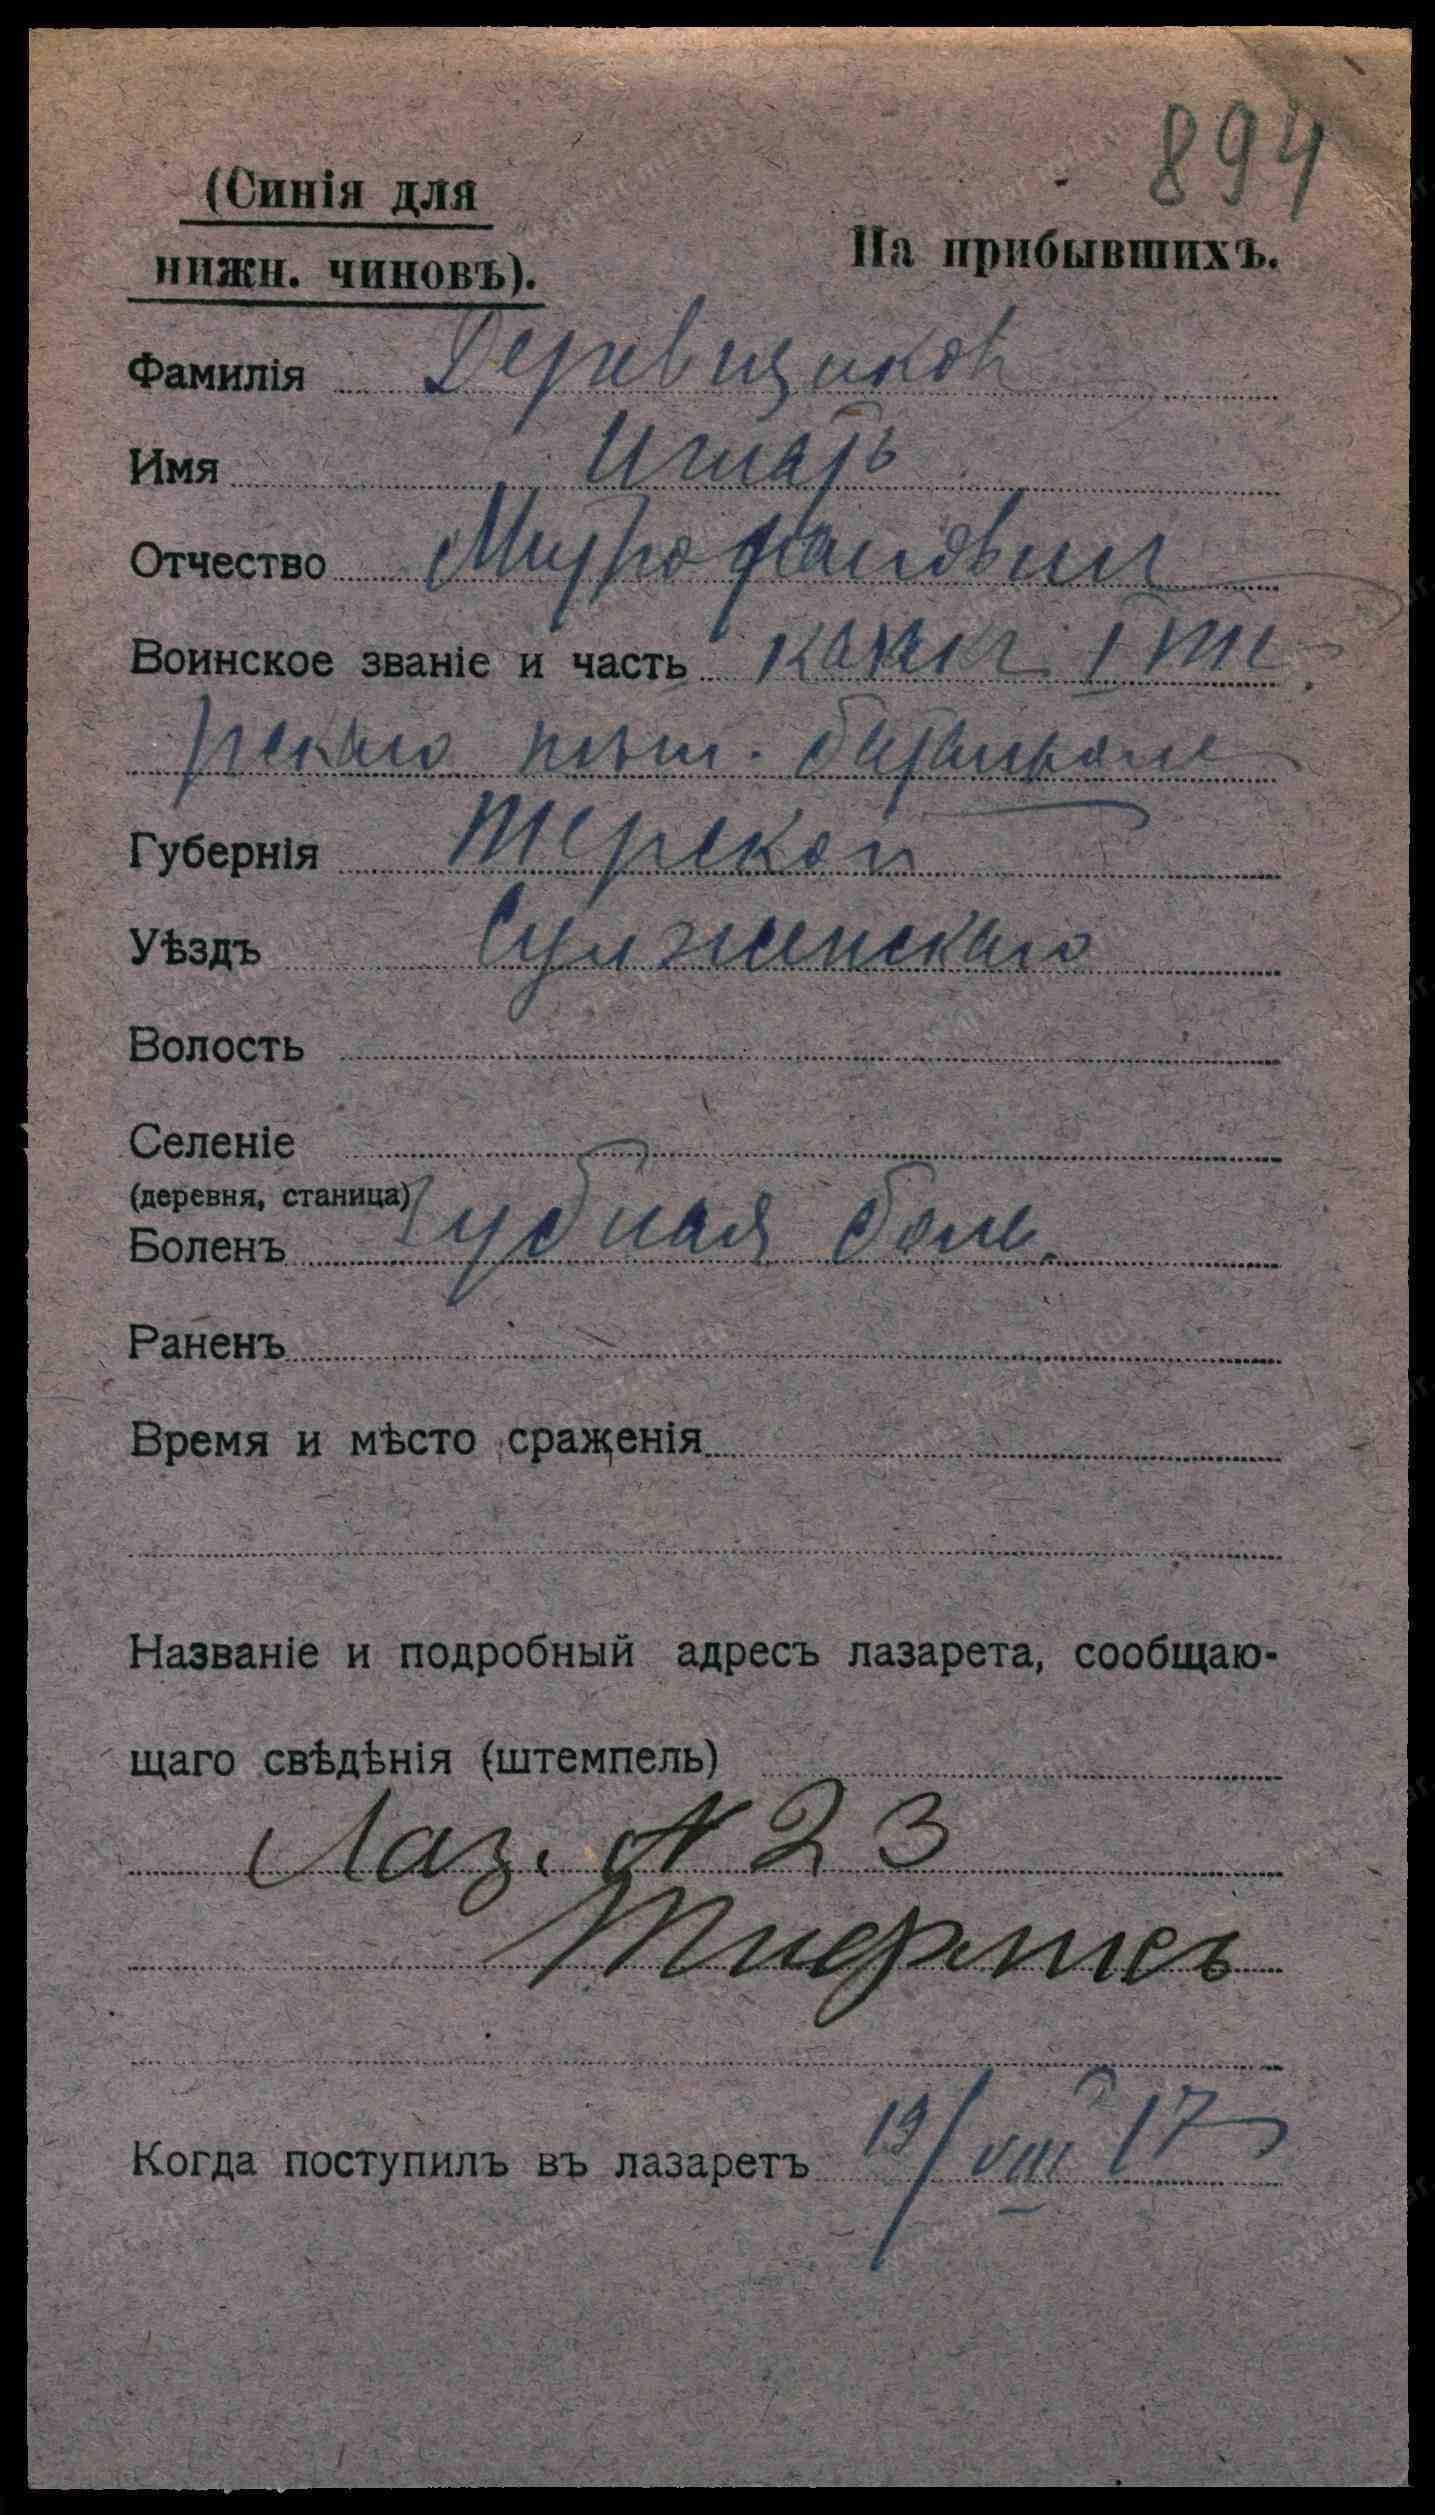 894
(Синія для
нижн. чиновъ).
На прибывшихъ.
Фамилія Деревщиков
Имя Игнатъ
Отчество Митрофанович
Воинское званіе и часть казак I Те
рскаго пѣш. баталіона
Губернія Терской
Уѣздъ Сунженскаго
Волость
Селеніе
(деревня, станица)
Боленъ Зубная боль.
Раненъ
Время и мѣсто сраженія
Названіе и подробный адресъ лазарета, сообщаю-
щаго свѣдѣнія (штемпель)
Лаз. № 23
Тифлисъ
Когда поступилъ въ лазаретъ 19/VIII 17